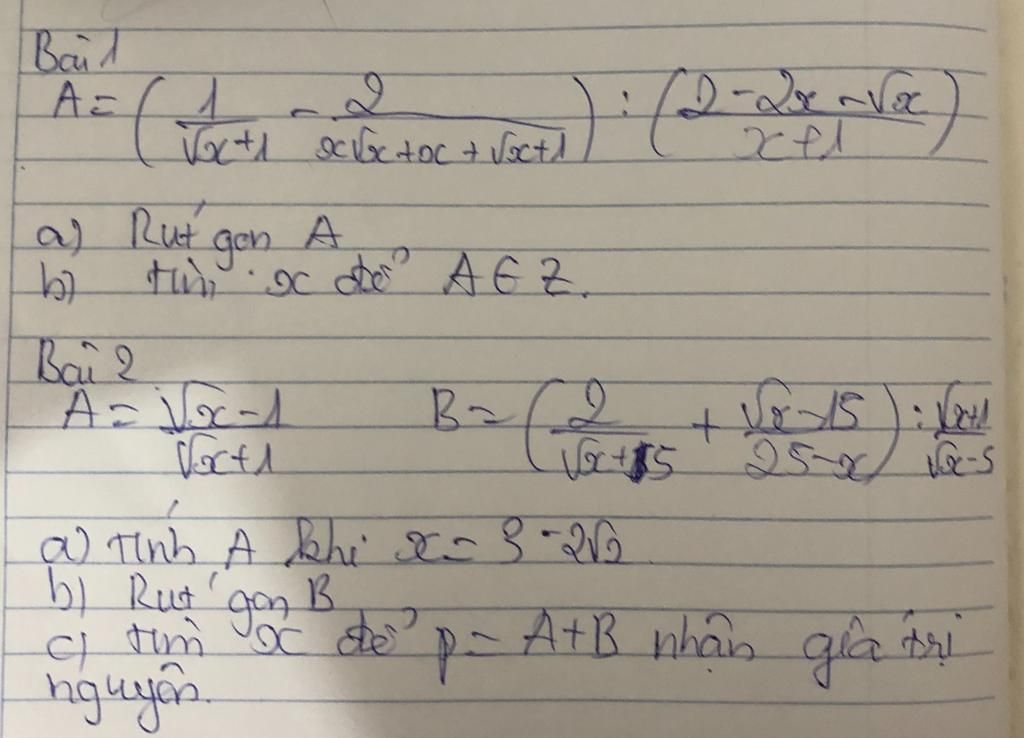 Bài 1
A = ( 1/(√x+1) - 2/(x√x+x+√x+1) ) : ( (2-2x-√x)/(x+1) )
a) Rút gọn A
b) tìm x để A ∈ Z.
Bài 2
A = (√x-1)/(√x+1) B = ( 2/(√x+5) + (√x-15)/(25-x) ) : (√x+1)/(√x-5)
a) tính A khi x = 3-2√2
b) Rút gọn B
c) tìm x để p = A+B nhận giá trị
nguyên.